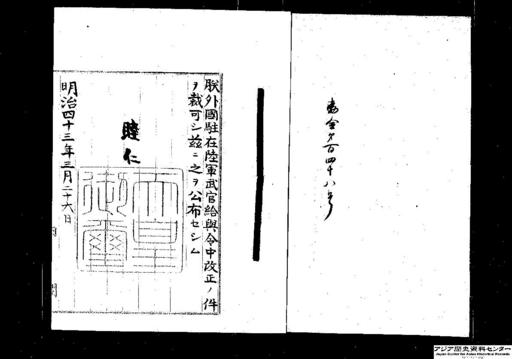 勅令第百四十八号
朕外國駐在陸軍武官給與令中改正ノ件
ヲ裁可シ茲ニ之ヲ公布セシム
睦仁
天皇御璽
明治四十三年三月二十六日
内閣
アジア歴史資料センター
Japan Center for Asian Historical Records